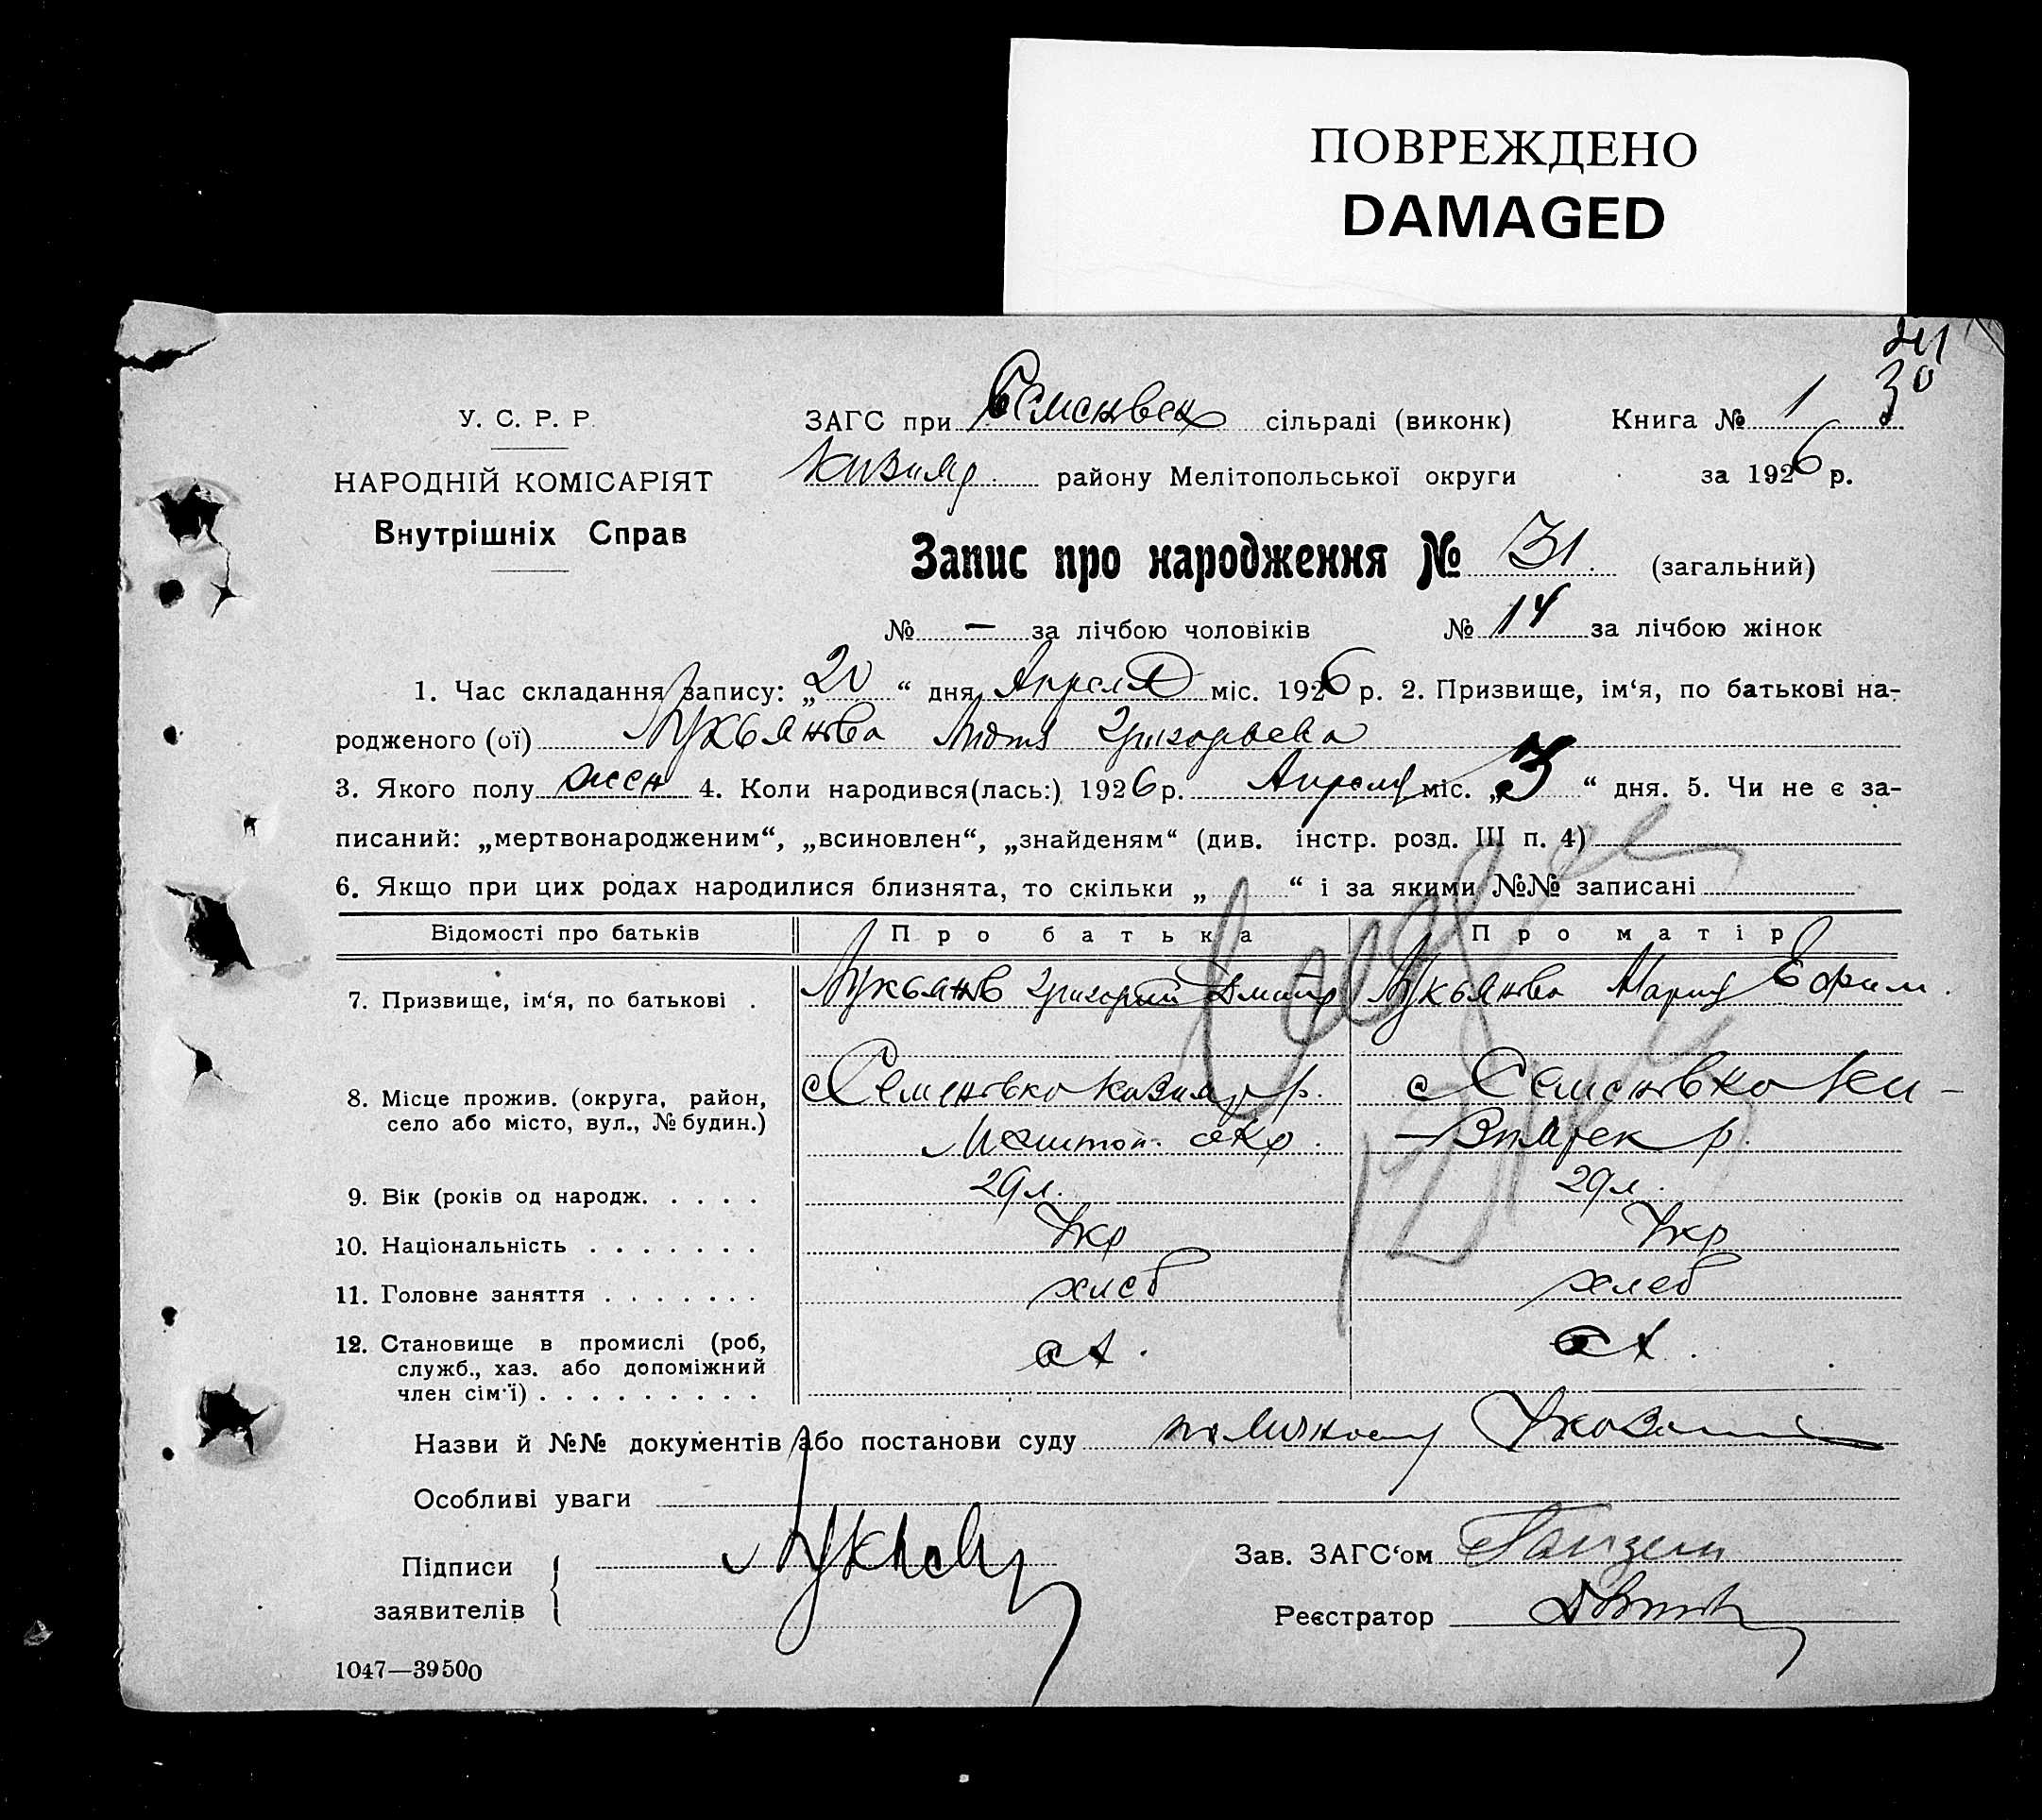 ПОВРЕЖДЕНО
DAMAGED
241
30
У. С. Р. Р.
НАРОДНІЙ КОМІСАРІЯТ
Внутрішніх Справ
ЗАГС при Семеновск сільраді (виконк) Книга № 1
Кизияр району Мелітопольської округи за 1926 р.
Запис про народження № 31. (загальний)
№ — за лічбою чоловіків № 14 за лічбою жінок
1. Час складання запису: „20“ дня Апреля міс. 1926 р. 2. Призвище, ім‘я, по батькові на-
родженого (ої) Лукьянова Лидия Григорьевна
3. Якого полу жен 4. Коли народився(лась:) 1926 р. Апреля міс. „3“ дня. 5. Чи не є за-
писаний: „мертвонародженим“, „всиновлен“, „знайденям“ (див. інстр. розд. III п. 4)
6. Якщо при цих родах народилися близнята, то скільки „ “ і за якими №№ записані
Відомості про батьків Про батька Про матір
7. Призвище, ім‘я, по батькові . Лукьянов Григорий Дмитр Лукьянова Мария Ефим.
8. Місце прожив. (округа, район, с Семеновка Кизияр р. с Семеновка Ки-
село або місто, вул., № будин.) Мелитоп. окр. р.
9. Вік (років од народж. . . . . 29 л. 29 л.
10. Національність . . . . . . . Укр Укр
11. Головне заняття . . . . . . . хлеб хлеб
12. Становище в промислі (роб,
служб., хаз. або допоміжний
член сім‘ї) . . . . . . . . .
Назви й №№ документів або постанови суду по личному
Особливі уваги
Підписи
заявителів
Зав. ЗАГС‘ом
Реєстратор
1047—39500